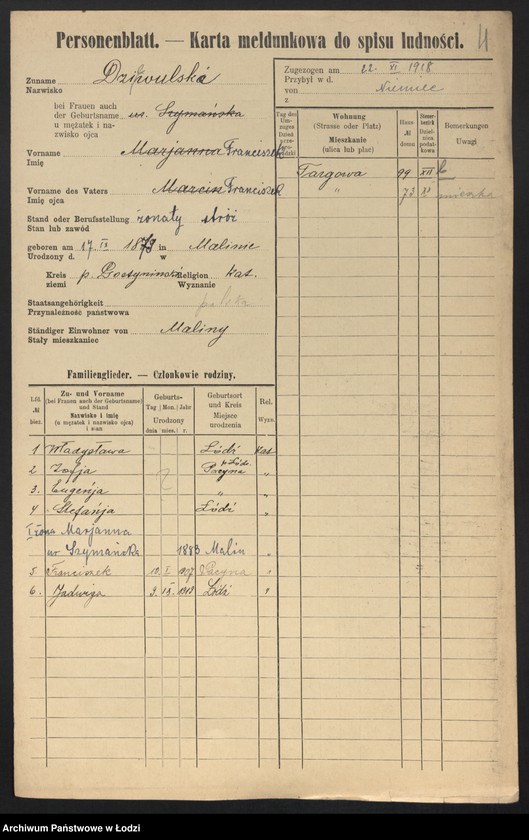 Personenblatt. — Karta meldunkowa do spisu ludności. 4
Zuname
Nazwisko
Dziewulska
bei Frauen auch
der Geburtsname
u mężatek i na-
zwisko ojca
ur. Szymańska
Vorname
Imię
Marjanna Franciszek
Vorname des Vaters
Imię ojca
Marcin Franciszek
Stand oder Berufsstellung
Stan lub zawód
żonaty stróż
geboren am 17. IX 1879 in Malinie
Urodzony d. w
Kreis
ziemi
p. Gostyniński
Religion
Wyznanie
kat.
Staatsangehörigkeit
Przynależność państwowa
polska
Ständiger Einwohner von
Stały mieszkaniec
Maliny
Zugezogen am
Przybył w d.
22. XI 1918
von
z
Niemiec
Tag des
Um-
zuges
Dzień
prze-
prowadzki
Wohnung
(Strasse oder Platz)
Mieszkanie
(ulica lub plac)
Haus-
№
domu
Haus-
bezirk
Dziel-
nica
podat-
kowa
Bemerkungen
Uwagi
Targowa 99 XII
" 73 XI
Familienglieder. — Członkowie rodziny.
Lfd.
№
bież.
Zu- und Vorname
(bei Frauen auch der Geburtsname)
und Stand
Nazwisko i imię
(u mężatek i nazwisko ojca)
i stan
Geburts-
Tag Mon. Jahr
Urodzony
dnia mies. r.
Geburtsort
und Kreis
Miejsce
urodzenia
Rel.
Wyzn.
1 Władysława Łódź Kat
2 Zofja Pacyna "
3. Eugenja " "
4 Stefanja Łódź "
żona Marjanna
ur Szymańska 1883 Malin "
5. Franciszek 10. I 1907 Pacyna "
6. Jadwiga 9. IX. 1913 Łódź "
Archiwum Państwowe w Łodzi